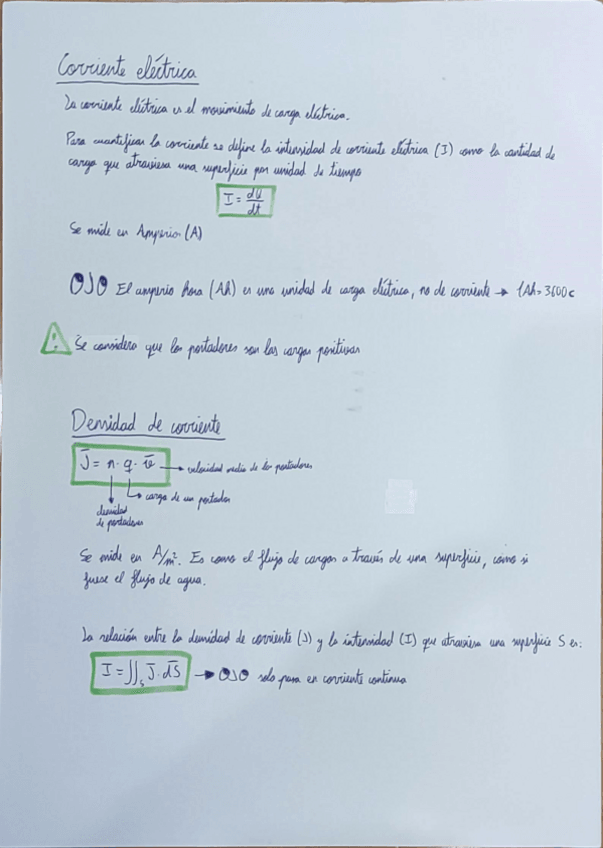 Corriente eléctrica
La corriente eléctrica es el movimiento de carga eléctrica.
Para cuantificar la corriente se define la intensidad de corriente eléctrica (I) como la cantidad de
carga que atraviesa una superficie por unidad de tiempo
I = dq/dt
Se mide en Amperios (A)
OJO El amperio hora (Ah) es una unidad de carga eléctrica, no de corriente → 1Ah = 3600 C
! Se considera que los portadores son las cargas positivas
Densidad de corriente
J̅ = n · q · v̅ → velocidad media de los portadores
carga de un portador
densidad
de portadores
Se mide en A/m². Es como el flujo de cargas a través de una superficie, como si
fuese el flujo de agua.
La relación entre la densidad de corriente (J) y la intensidad (I) que atraviesa una superficie S es:
I = ∬ₛ J̅ · dS̅ → OJO solo para en corriente continua